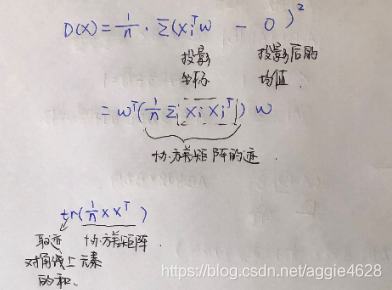 D(X) = 1/n · Σ(xᵢᵀw - 0)²
投影 投影后的
坐标 均值.
= wᵀ(1/n Σ|xᵢ xᵢᵀ|) w
协方差矩阵的迹
tr(1/n XXᵀ)
取迹 协方差矩阵.
对角线上元素
的和.
https://blog.csdn.net/aggie4628